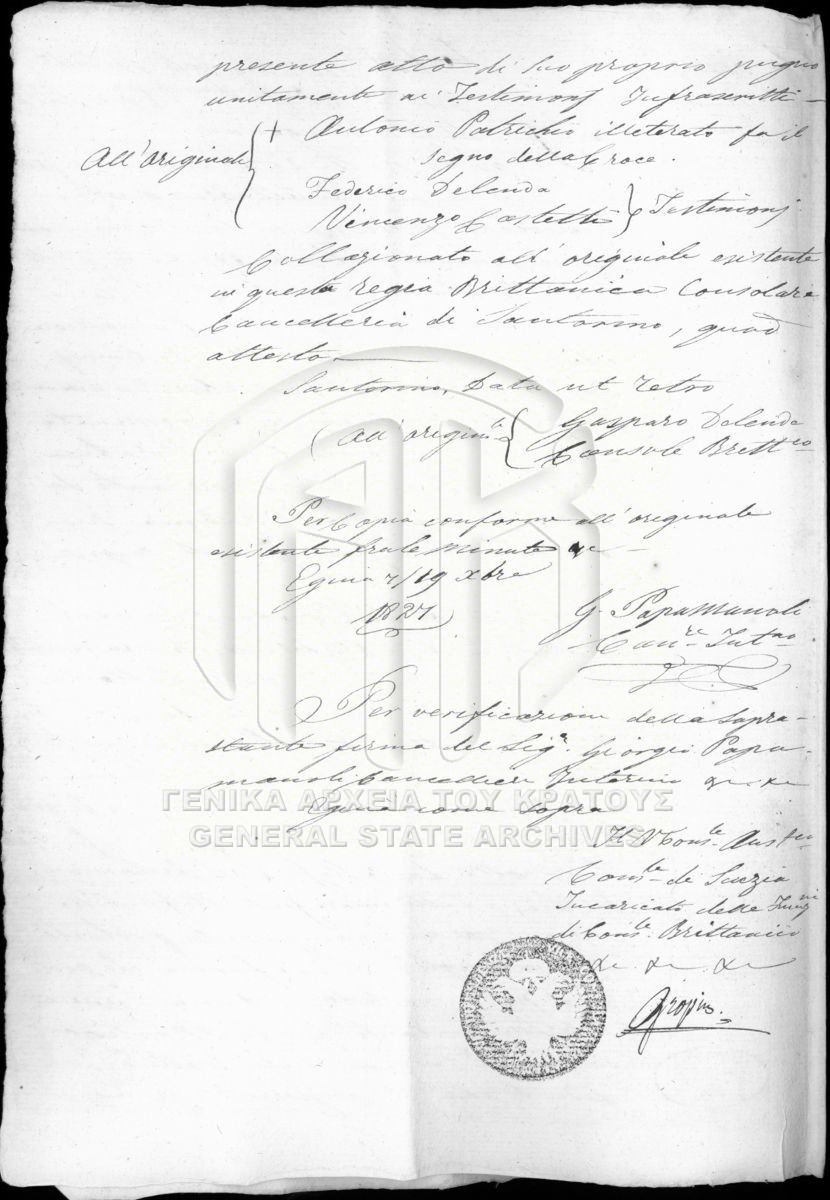 presente atto di suo proprio pugno
unitamente ai Testimonj Infrascritti —
+ Antonio Patrichio illeterato fa il
segno della Croce.
All'originale
Federico Delenda
Vincenzo Castelli
Testimonj
Collazionato all'originale esistente
in questa regia Brittanica Consolare
Cancelleria di Santorino, quod
attesto —
Santorino, Data ut retro
(All'origin.le
Gasparo Delenda
Console Britt.co
Per Copia conforme all'originale
esistente fra le minute
Egina 7/19 Xbre
1827
G. Papamanoli
Can.re Int.no
Per verificazione della sopra-
stante firma del Sig.r Giorgio Papa-
manoli Cancelliere Interino
ΓΕΝΙΚΑ ΑΡΧΕΙΑ ΤΟΥ ΚΡΑΤΟΥΣ
Egina come sopra
GENERAL STATE ARCHIVES
Il V Cons.le Aust.co
Cons.le de Suezia
Incaricato delle Funz.ni
di Cons.le Brittanico
Gropius.